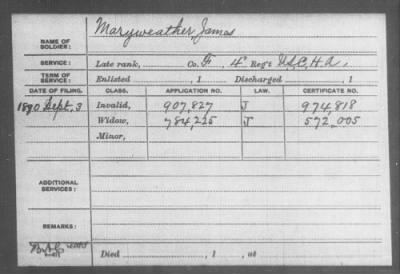 Maryweather, James
NAME OF SOLDIER:
SERVICE: Late rank, Co. F, 4" Reg't U.S.C.H.A.
TERM OF SERVICE: Enlisted , 1 Discharged , 1
DATE OF FILING. CLASS. APPLICATION NO. LAW. CERTIFICATE NO.
1890 Sept. 3 Invalid, 907,827 J 974,818
Widow, 784,225 J 572,005
Minor,
ADDITIONAL SERVICES:
REMARKS:
Died , 1 , at